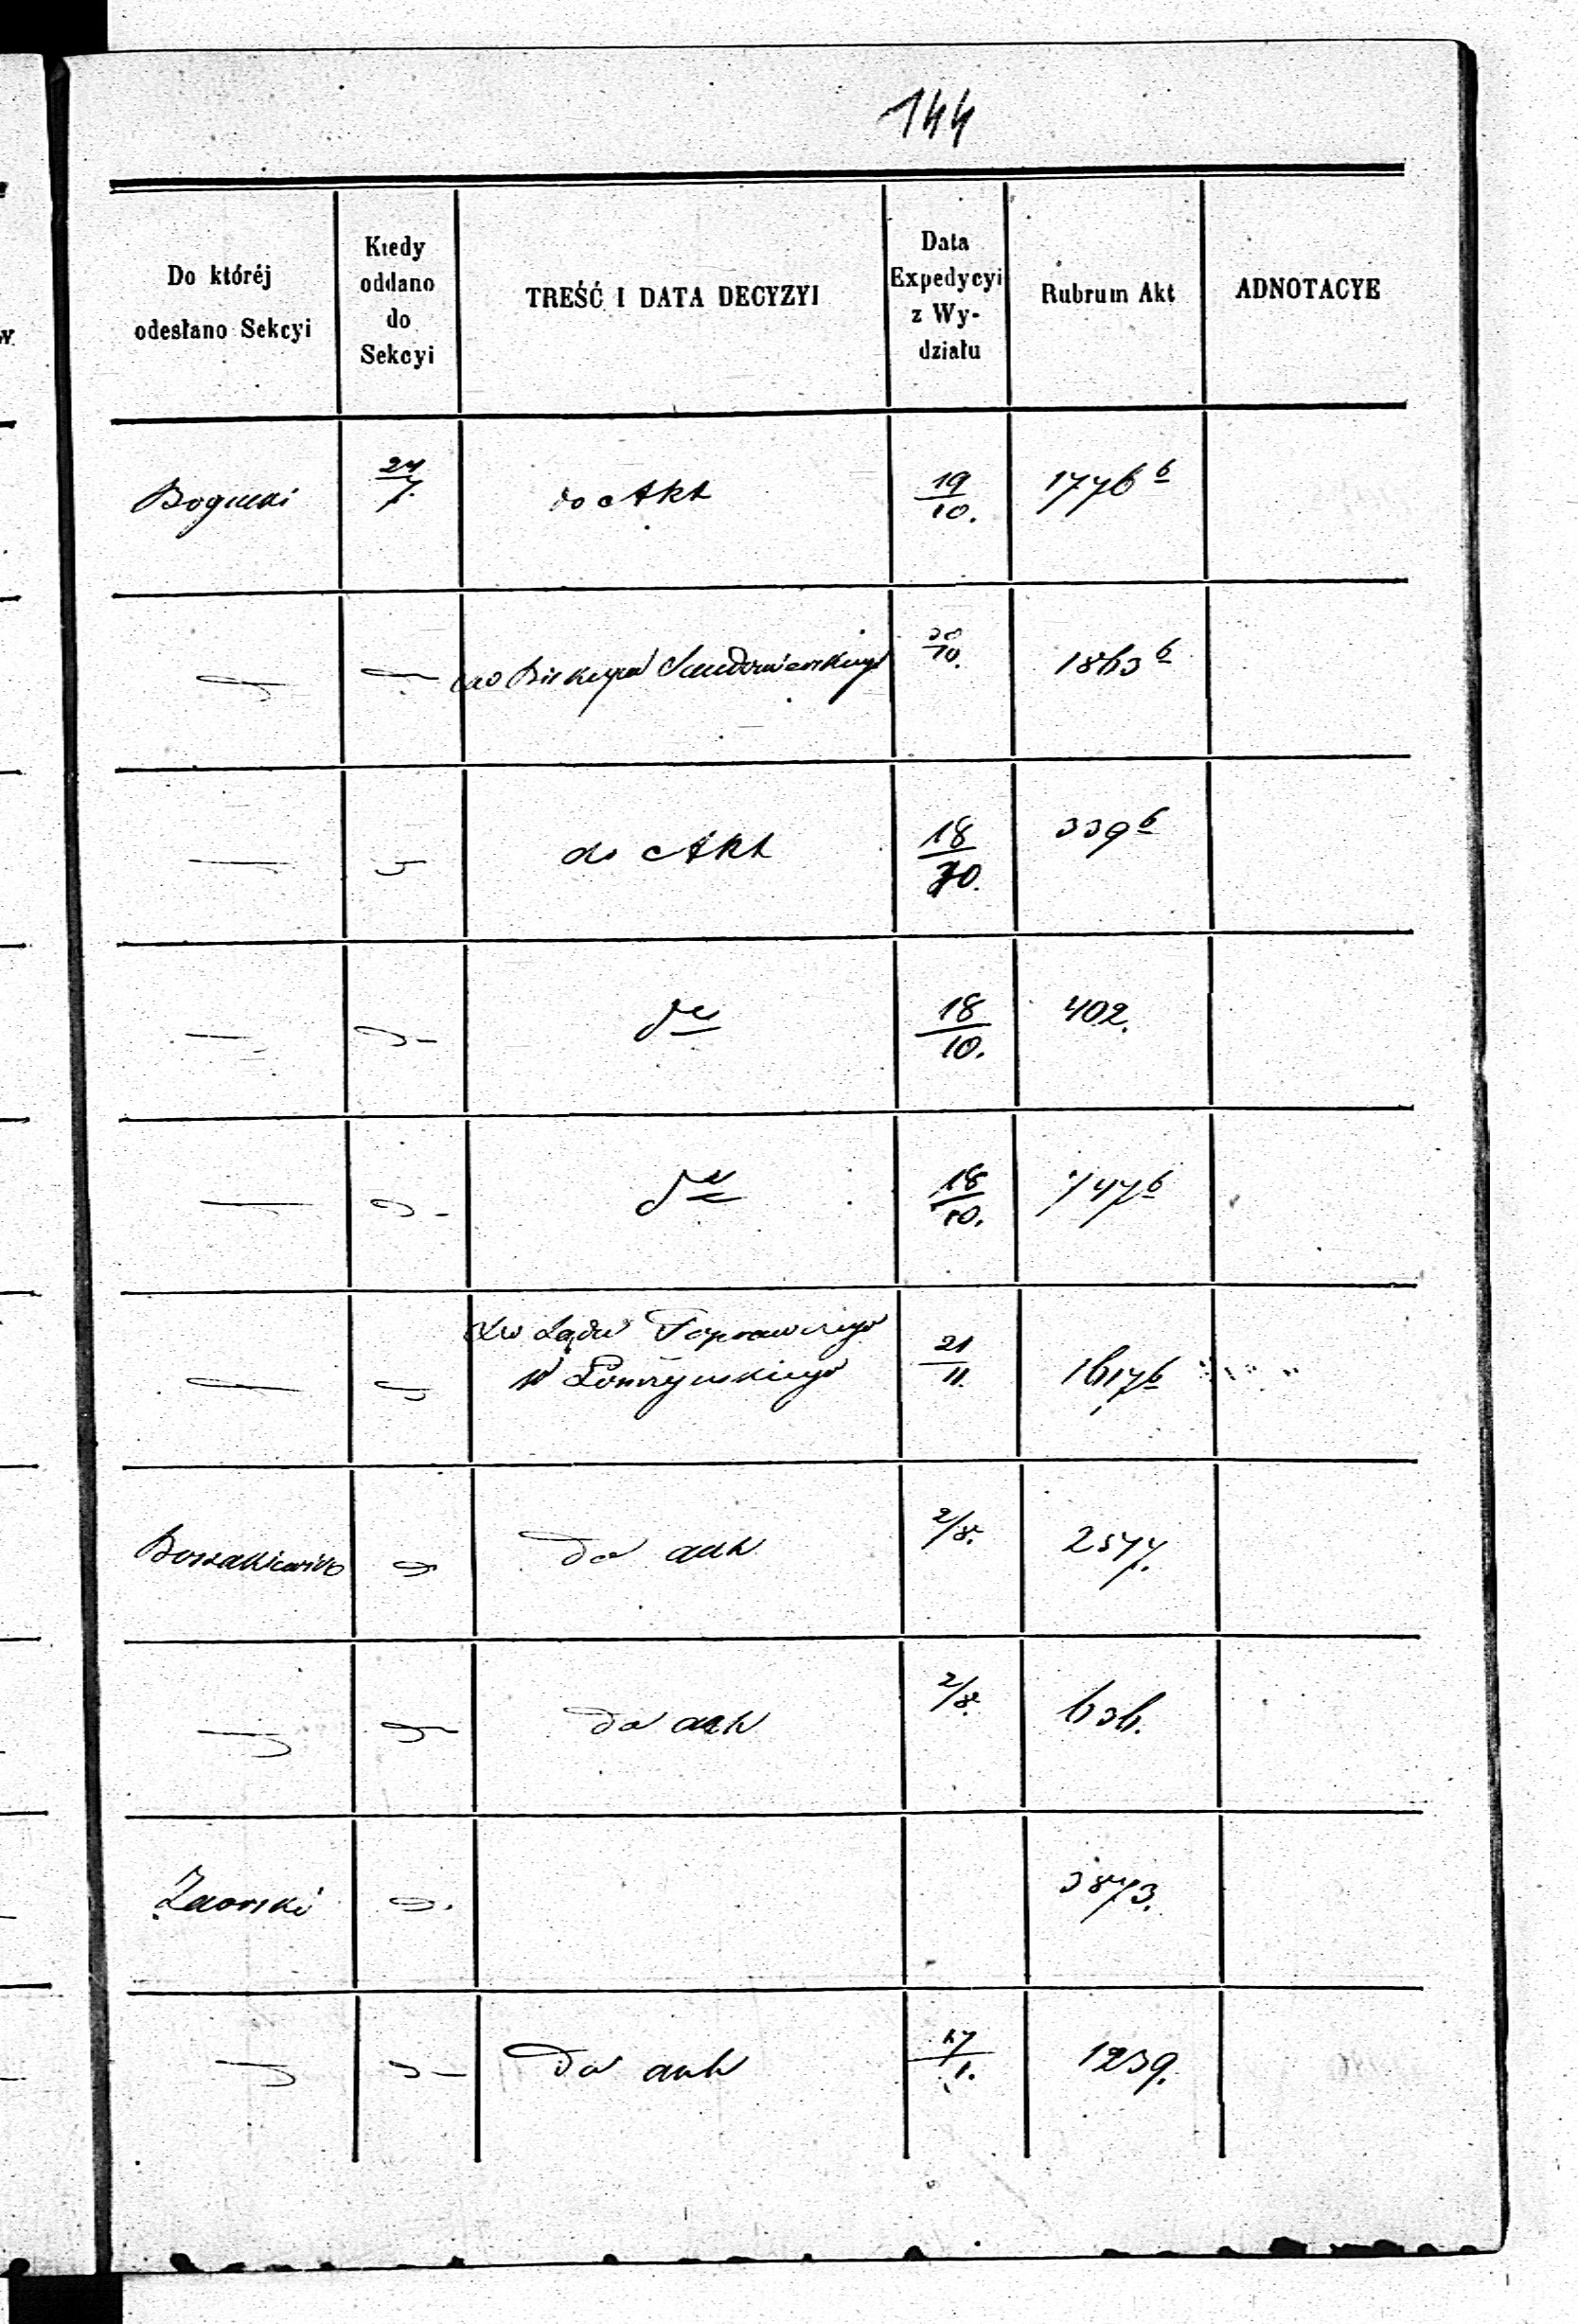 144
Do któréj odesłano Sekcyi
Kiedy oddano do Sekcyi
TREŚĆ I DATA DECYZYI
Data Expedycyi z Wydziału
Rubrum Akt
ADNOTACYE
Bogucki 24/7. do Akt 19/10. 1776 b
do Biskupa Sandomierskiego 30/10. 1863 b
do Akt 18/10. 339 b
18/10. 402.
18/10. 747 b
Do Sądu Poprawczego
w Łomżyńskiego 21/11. 1617 b
do akt 2/8. 2577.
do akt 2/8. 636.
Zaorski 3873.
do akt 1239.